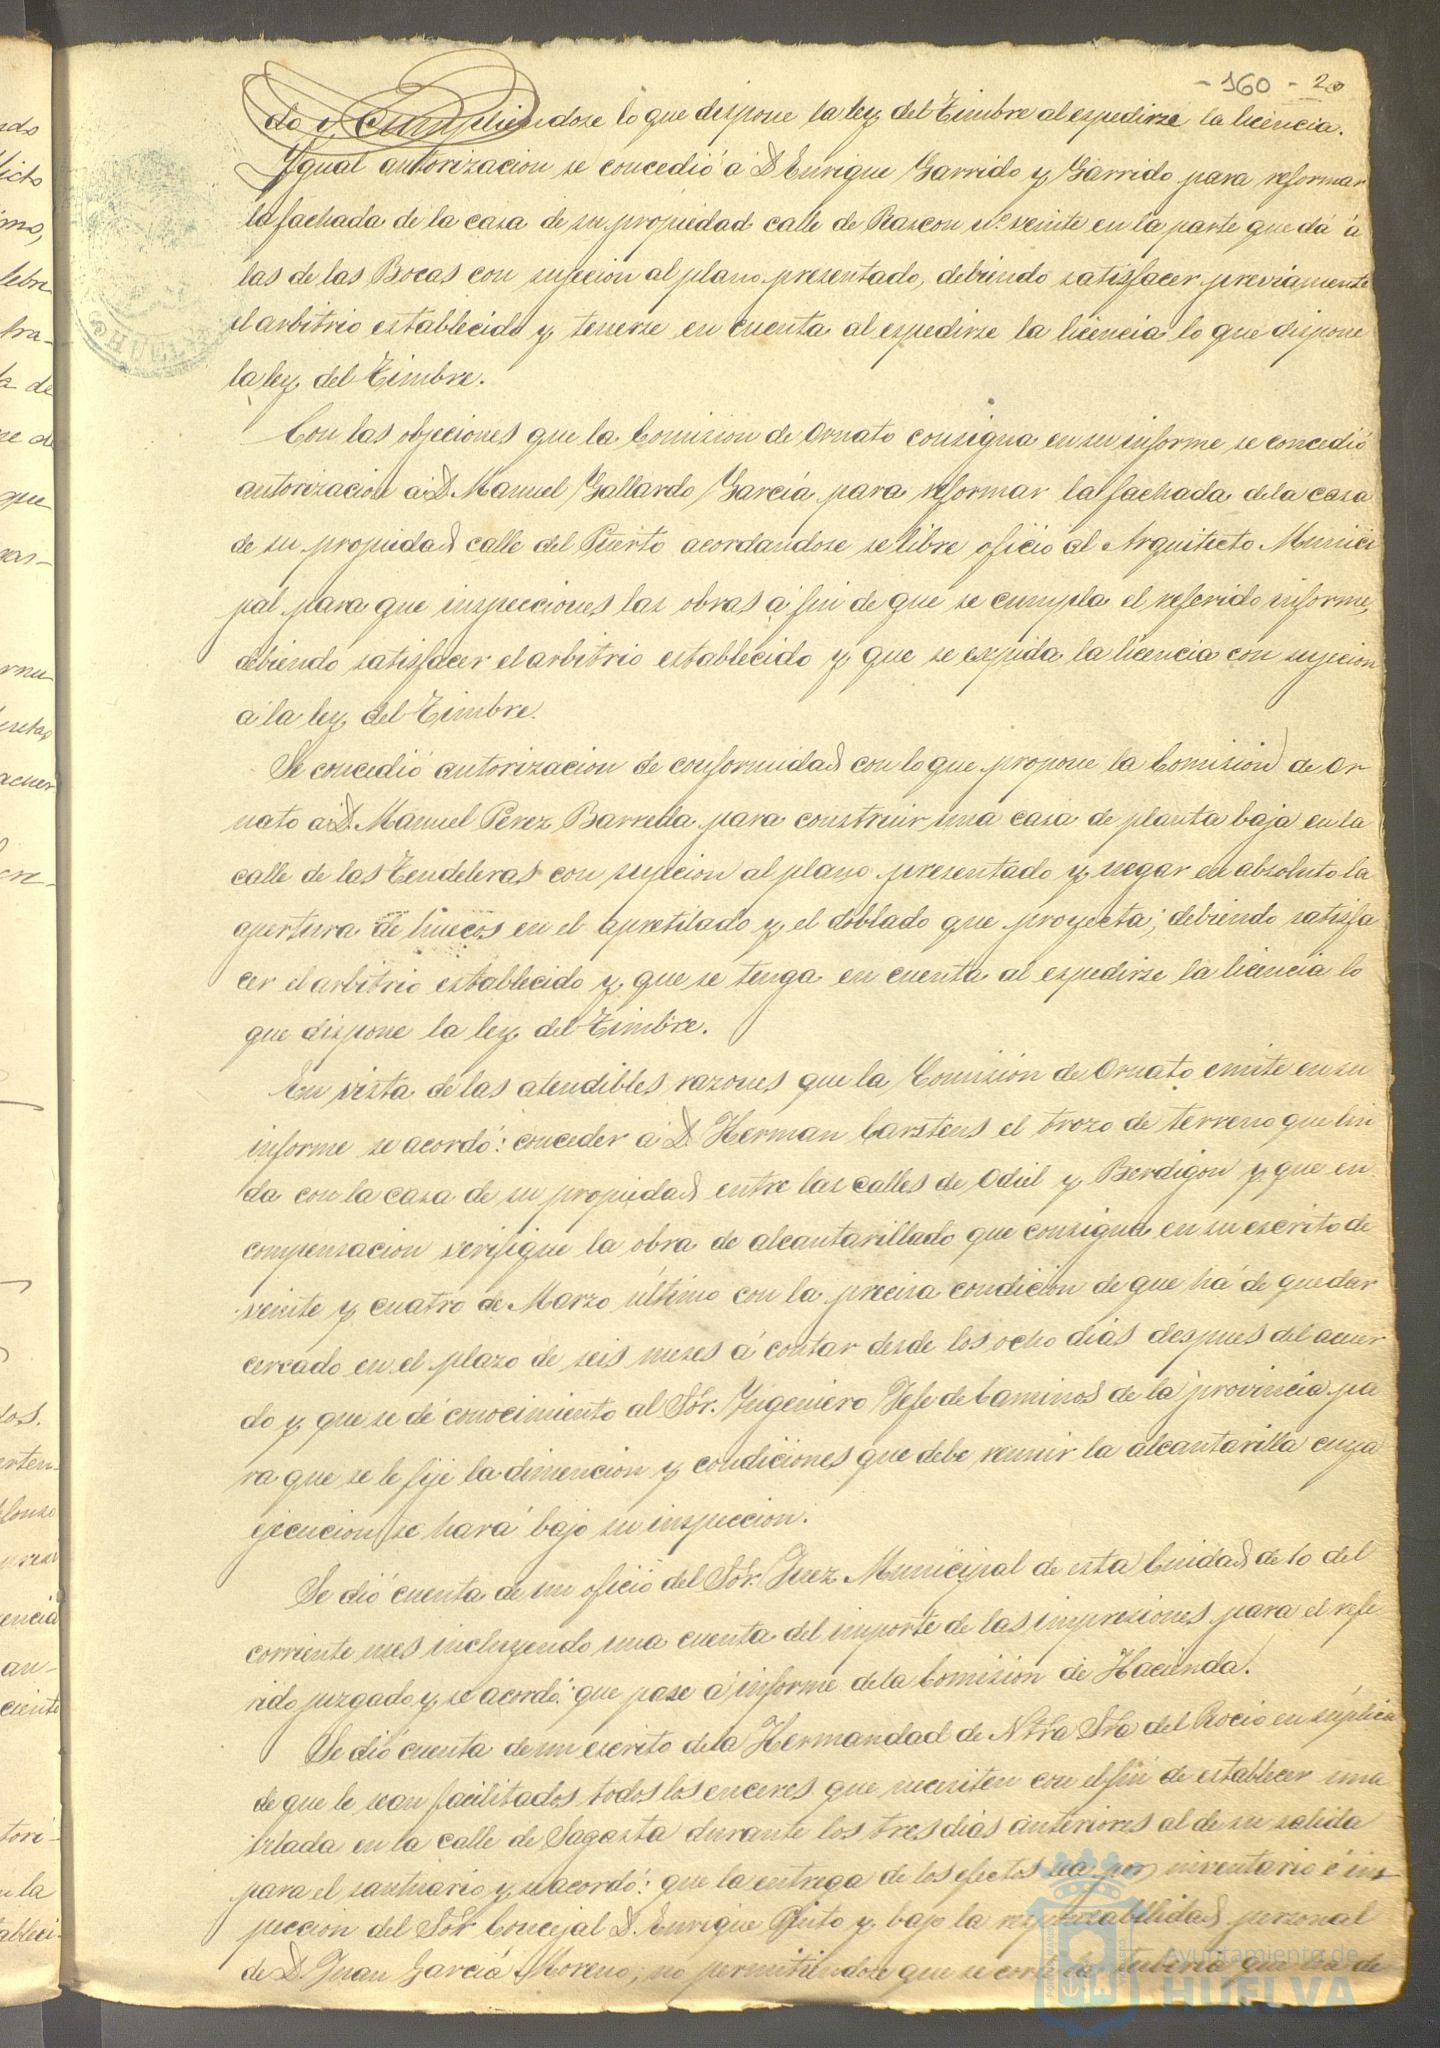 - 160 - 20
do y cumpliendose lo que dispone la ley del Timbre al espedirse la licencia.
Ygual autorizacion se concedió á D Enrique Garrido y Garrido para reformar
la fachada de la casa de su propiedad calle de Rascon nº veinte en la parte que dá á
las de las Bocas con sujecion al plano presentado, debiendo satisfacer previamente
el arbitrio establecido y tenerse en cuenta al espedirse la licencia lo que dispone
la ley del Timbre.
Con las objeciones que la Comision de Ornato consigna en su informe se concedió
autorizacion á D. Manuel Gallardo Garcia para reformar la fachada de la casa
de su propiedad calle del Puerto acordandose se libre oficio al Arquitecto Munici
pal para que inspecciones las obras á fin de que se cumpla el referido informe,
debiendo satisfacer el arbitrio establecido y que se expida la licencia con sujecion
á la ley del Timbre.
Se concedió autorizacion de conformidad con lo que propone la Comision de Or
nato á D. Manuel Perez Barreda para construir una casa de planta baja en la
calle de las Tendeleras con sujecion al plano presentado y negar en absoluto la
apertura de huecos en el apretilado y el doblado que proyecta; debiendo satisfa
cer el arbitrio establecido y que se tenga en cuenta al espedirse la licencia lo
que dispone la ley del Timbre.
En vista de las atendibles razones que la Comision de Ornato emite en su
informe se acordó: conceder á D. Herman Carstens el trozo de terreno que lin
da con la casa de su propiedad entre las calles de Odiel y Berdigon y que en
compensacion verifique la obra de alcantarillado que consigna en su escrito de
veinte y cuatro de Marzo último con la precisa condicion de que há de quedar
cercado en el plazo de seis meses á contar desde los ocho dias despues del acuer
do y que se dé conocimiento al Sór. Yngeniero Jefe de Caminos de la provincia pa
ra que se le fije la dimencion y condiciones que debe reunir la alcantarilla cuya
ejecucion se hará bajo su inspeccion.
Se dió cuenta de un oficio del Sór. Juez Municipal de esta Ciudad de 10 del
corriente mes incluyendo una cuenta del importe de las impresiones para el refe
rido juzgado y se acordó: que pase á informe de la Comision de Hacienda.
Se dió cuenta de un escrito de la Hermandad de Ntra Sra del Rocio en súplica
de que le sean facilitados todos los enceres que necesiten con el fin de establecer una
velada en la calle de Sagasta durante los tres dias anteriores al de su salida
para el santuario y se acordó: que la entrega de los efectos sea por inventario é ins
peccion del Sór Concejal D. Enrique Pinto y bajo la responsabilidad personal
de D. Juan Garcia Moreno, no permitiendose que se corte la tuberia que há de
Ayuntamiento de
HUELVA